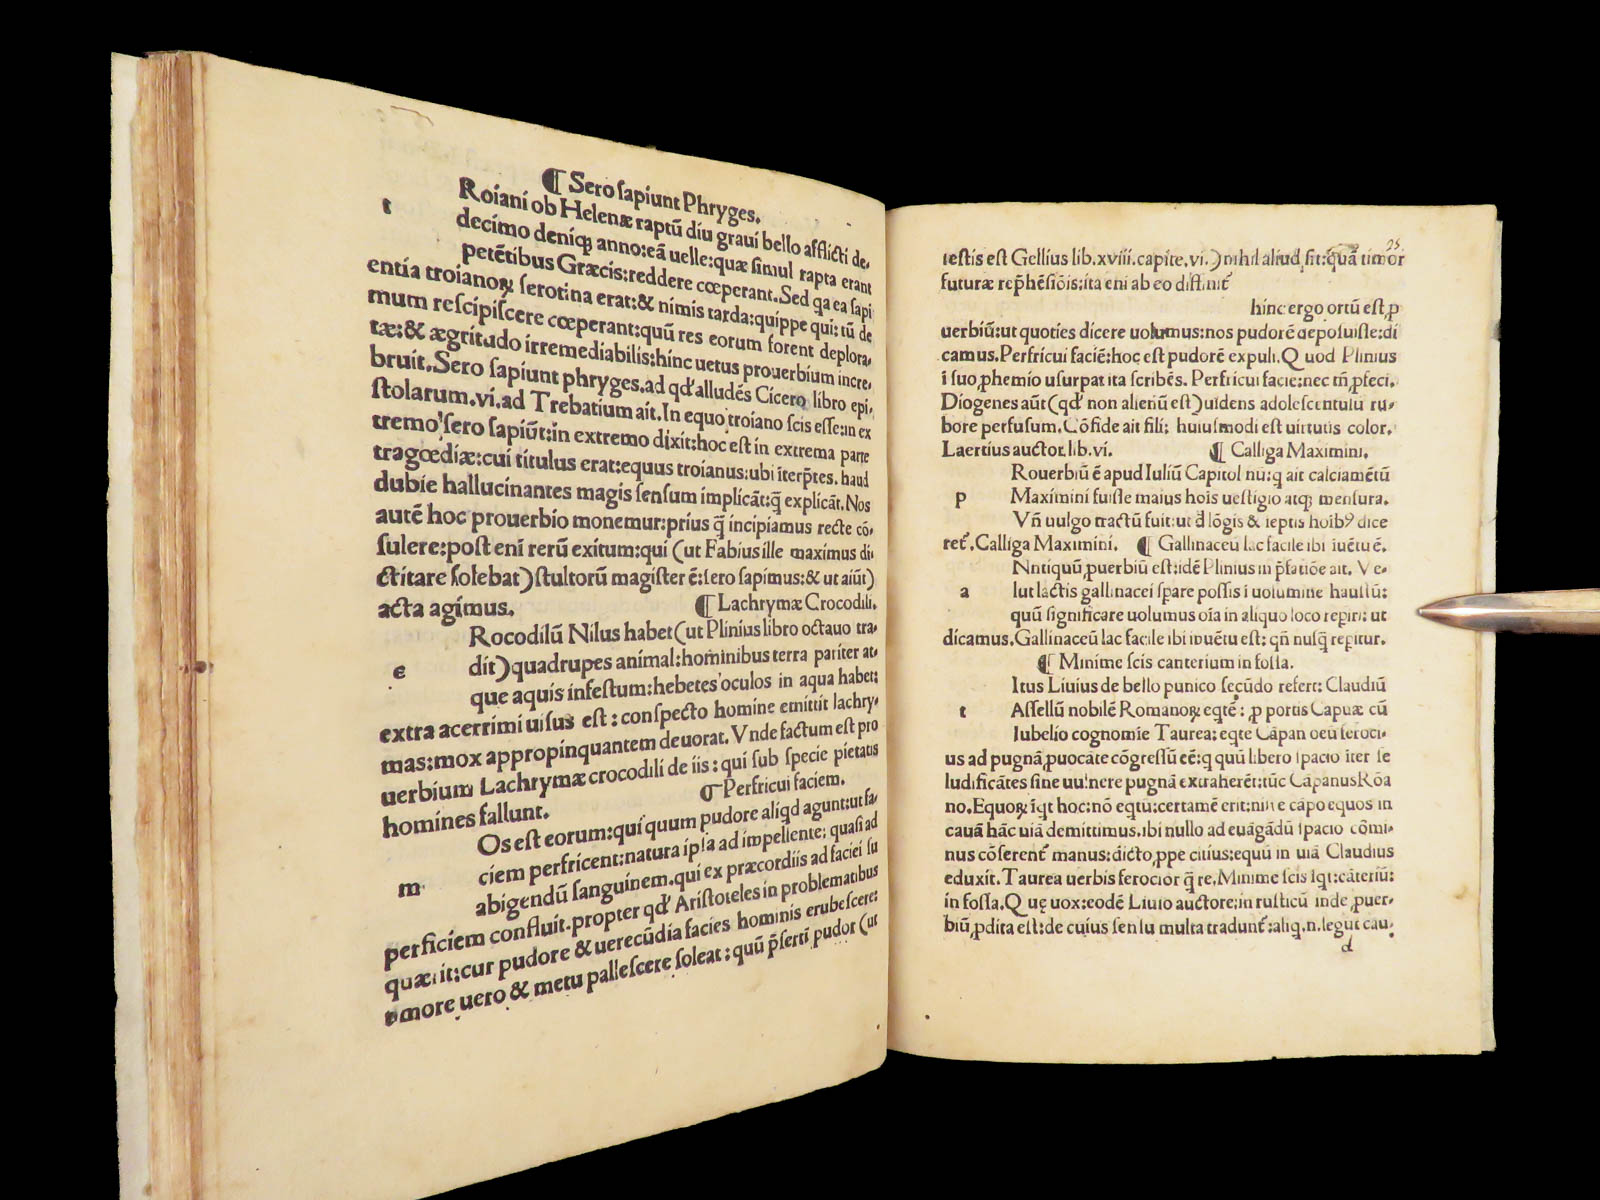 ¶ Sero sapiunt Phryges.
t Roiani ob Helenæ raptũ diu graui bello afflicti de-
decimo deniqꝫ anno:eã uelle:quæ simul rapta erant
petẽtibus Græcis:reddere cœperant. Sed qa ea sapi
entia troianoꝝ serotina erat:& nimis tarda:quippe qui:tũ de
mum rescipiscere cœperant:quũ res eorum forent deplora-
tæ:& ægritudo irremediabilis:hinc uetus prouerbium incre-
bruit. Sero sapiunt phryges. ad qđ alludẽs Cicero libro epi-
stolarum.vi.ad Trebatium ait. In equo troiano scis esse:in ex
tremo sero sapiũt:in extremo dixit:hoc est in extrema parte
tragœdiæ:cui titulus erat:equus troianus:ubi iterp̃tes. haud
dubie hallucinantes magis sensum implicãt:q̃ explicãt. Nos
autẽ hoc prouerbio monemur:prius q̃ incipiamus recte cõ-
sulere:post eni rerũ exitum:qui (ut Fabius ille maximus di-
ctitare solebat) stultorũ magister ẽ:sero sapimus:& ut aiũt)
acta agimus. ¶ Lachrymæ Crocodili.
Rocodilũ Nilus habet (ut Plinius libro octauo tra-
c dit) quadrupes animal:hominibus terra pariter at-
que aquis infestum:hebetes oculos in aqua habet:
extra acerrimi uisus est : conspecto homine emittit lachry-
mas:mox appropinquantem deuorat. Vnde factum est pro
uerbium Lachrymæ crocodili de iis : qui sub specie pietatis
homines fallunt. ¶ Perfricui faciem.
Os est eorum:qui quum pudore aliqd agunt:ut fa-
m ciem perfricent:natura ipsa ad impellente: quasi ad
abigendũ sanguinem.qui ex præcordiis ad faciei su
perficiem confluit.propter qđ Aristoteles in problematibus
quærit:cur pudore & uerecũdia facies hominis erubescere:
timore uero & metu pallescere soleat : quũ p̃sertĩ pudor (ut
25
testis est Gellius lib.xviii.capite.vi.) nihil aliud sit:quã timor
futuræ rep̃hẽsiõis:ita eni ab eo distinit᷑
hinc ergo ortũ est ꝓ
uerbiũ:ut quoties dicere uolumus:nos pudorẽ deposuisse:di
camus. Perfricui faciẽ:hoc est pudorẽ expuli. Quod Plinius
ĩ suo ꝓhemio usurpat ita scribẽs. Perfricui facie:nec tñ ꝓfeci.
Diogenes aũt (qđ non alienũ est) uidens adolescentulũ ru-
bore perfusum. Cõfide ait fili: huiusmodi est uirtutis color.
Laertius auctor.lib.vi. ¶ Calliga Maximini.
Rouerbiũ ẽ apud Iuliũ Capitolinũ:q ait calciamẽtũ
p Maximini fuisse maius hois uestigio atqꝫ mensura.
Vñ uulgo tractũ fuit:ut đ lõgis & ieptis hoibꝰ dice
ret᷑. Calliga Maximini. ¶ Gallinaceũ lac facile ibi iuẽtu ẽ.
Nntiquũ ꝓuerbiũ est:idẽ Plinius in p̃fatiõe ait. Ve-
a lut lactis gallinacei spare possis ĩ uolumine haustũ:
quũ significare uolumus oĩa in aliquo loco repiri: ut
dicamus. Gallinaceũ lac facile ibi iuẽtu est: qñ nusq̃ repitur.
¶ Minime scis canterium in fossa.
Itus Liuius de bello punico secũdo refert: Claudiũ
t Assellũ nobilẽ Romanoꝝ eqtẽ: ꝓ portis Capuæ cũ
Iubelio cognomĩe Taurea: eqte Cãpano eũ feroci-
us ad pugnã ꝓuocãte cõgressũ eẽ:q quũ libero spacio iter se
ludificãtes sine uulnere pugnã extraherẽt:tũc Cãpanus Rõa
no. Equoꝝ iqt hoc:nõ eqtũ:certamẽ erit:nisi e cãpo equos in
cauã hãc uiã demittimus. ibi nullo ad euãgãdũ spacio cõmi-
nus cõserent᷑ manus:dicto ꝓpe citius:equũ in uiã Claudius
eduxit. Taurea uerbis ferocior q̃ re. Minime scis iqt:cãteriũ:
in fossa. Quę uox:eodẽ Liuio auctore:in rusticũ inde ꝓuer-
biũ ꝓdita est:de cuius sensu multa tradunt᷑:aliq.n.legũt cau-
d